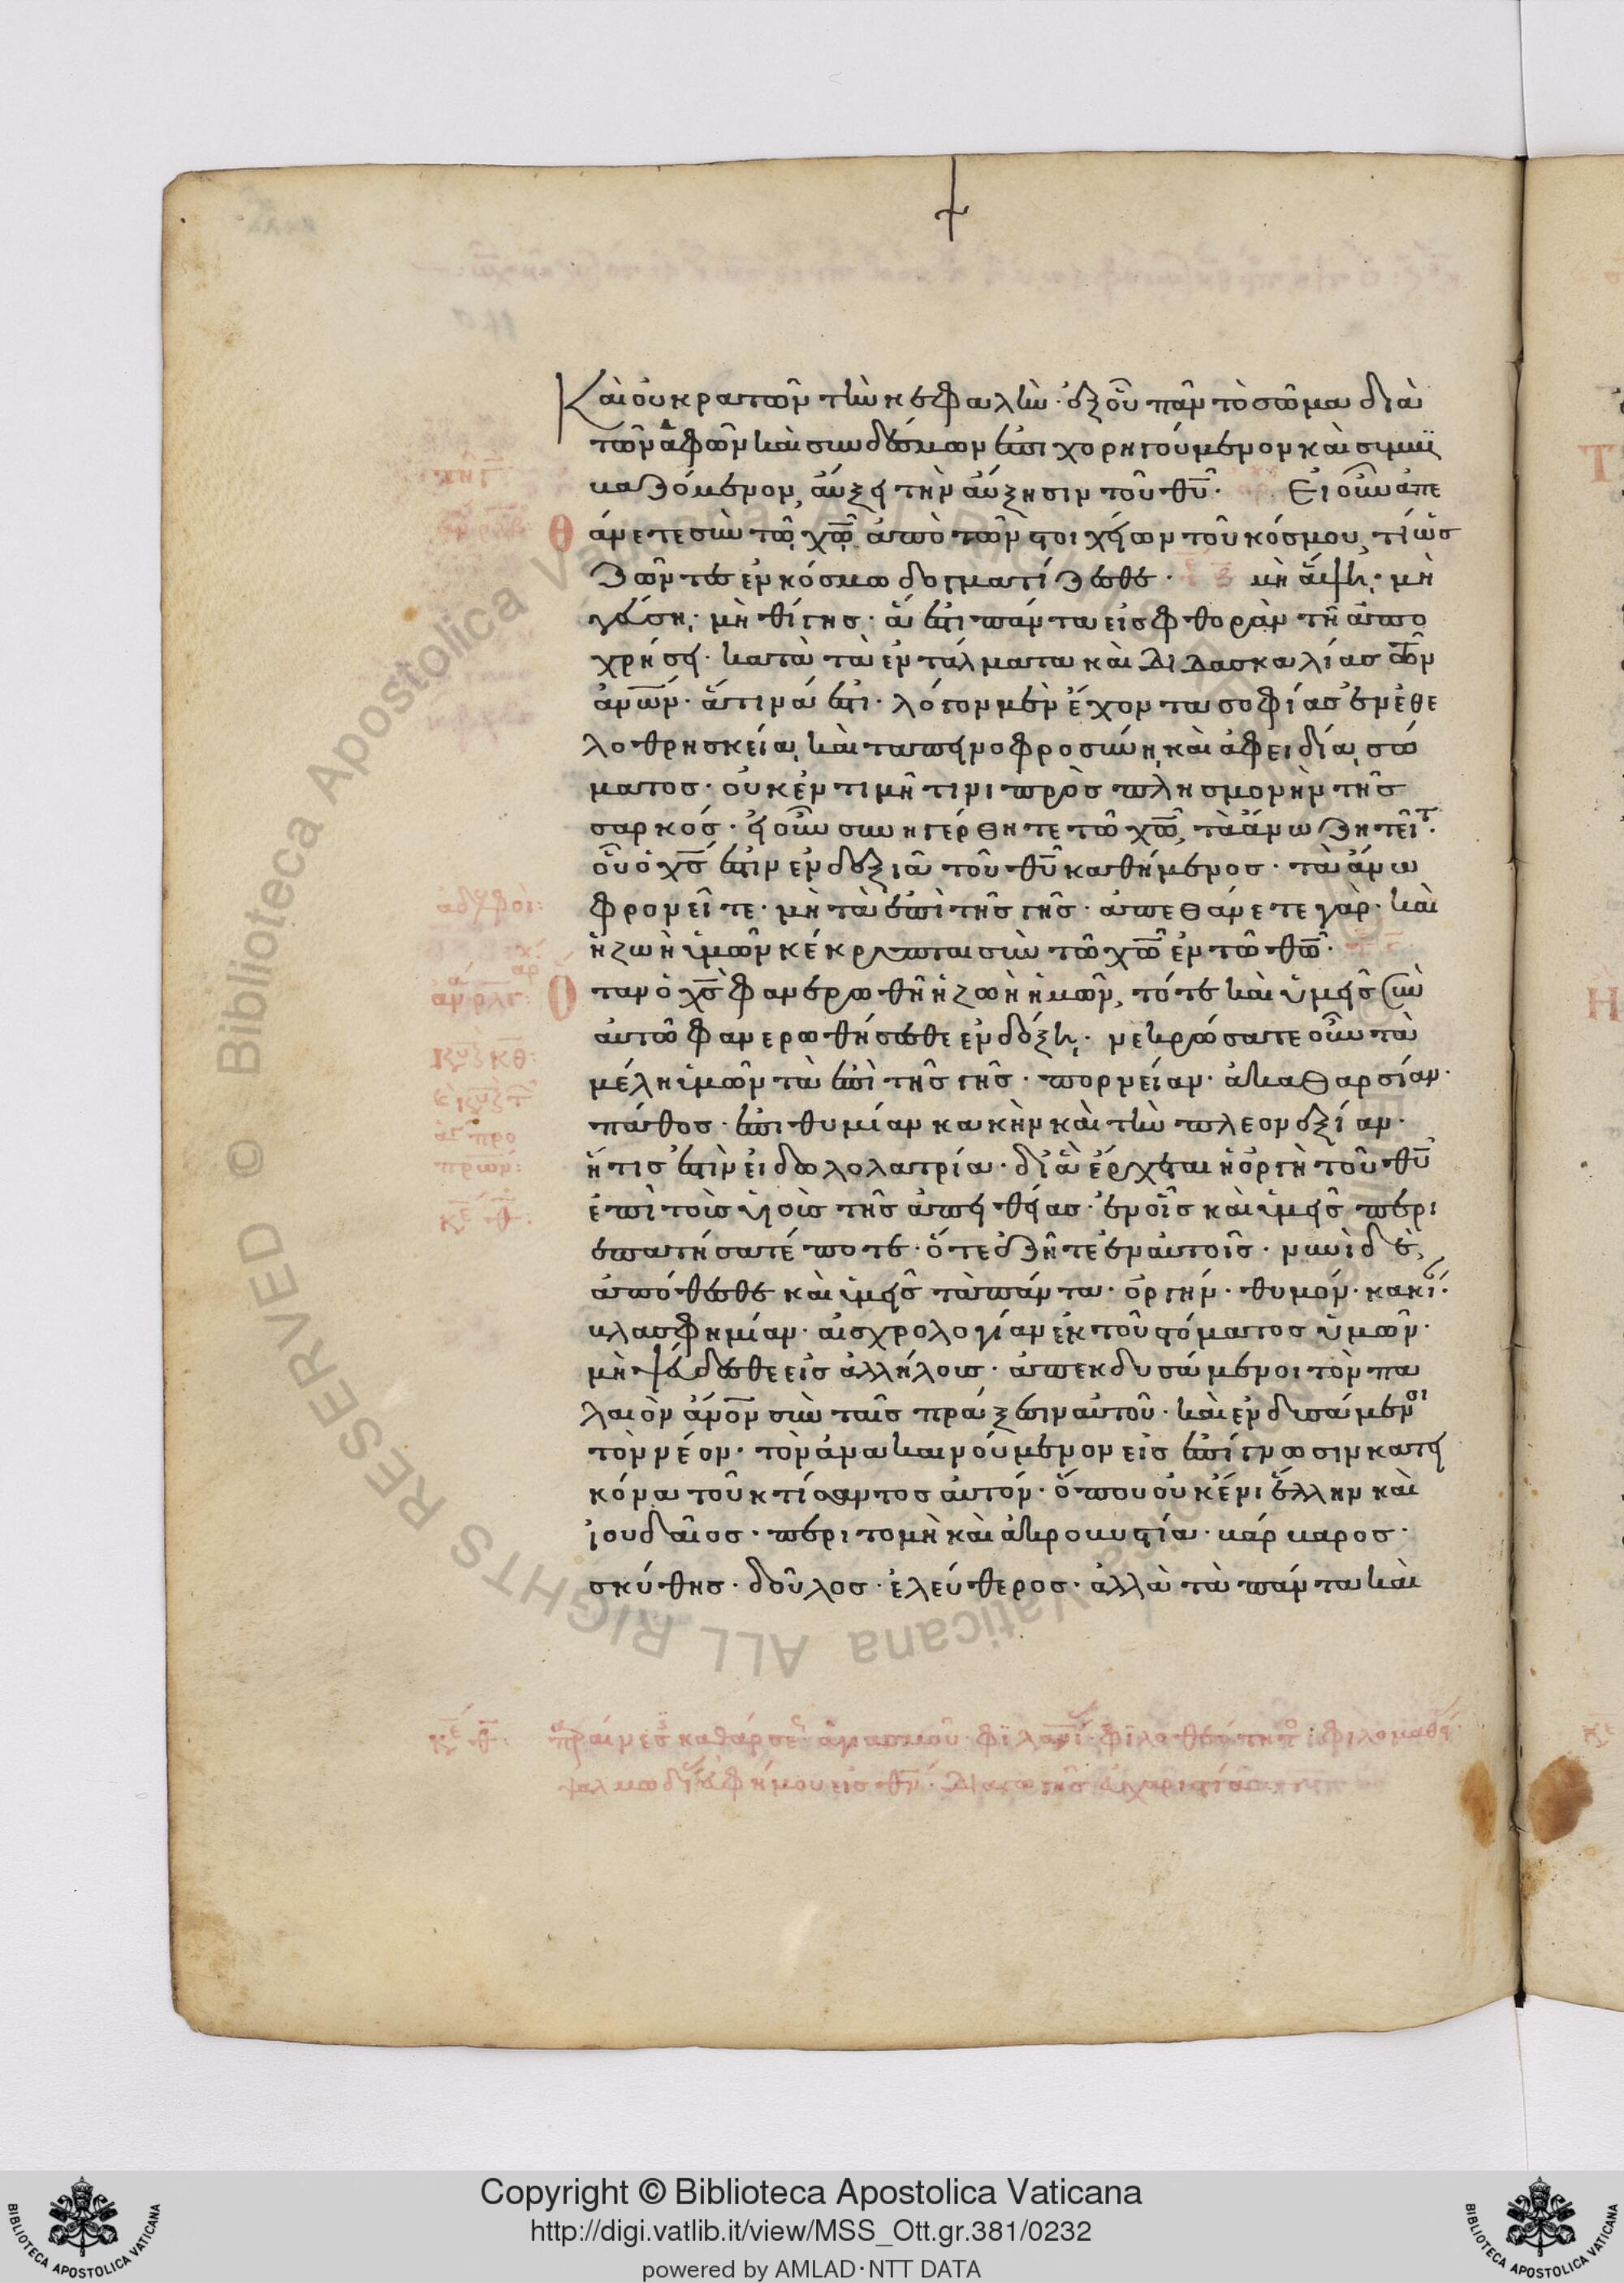 Καὶ οὐ κρατῶν τὴν κεφαλήν· ἐξ οὗ πᾶν τὸ σῶμα διὰ
τῶν ἁφῶν καὶ συνδέσμων ἐπιχορηγούμενον καὶ συμβι
βαζόμενον, αὔξει τὴν αὔξησιν τοῦ θυ̅· Εἰ οὖν ἀπε
θάνετε σὺν τῶ χω̅ ἀπὸ τῶν στοιχείων τοῦ κόσμου, τί ὡς
ζῶντες ἐν κόσμω δογματίζεσθε· μὴ ἅψη· μὴ
γεύση· μὴ θίγης· ἅ ἐστι πάντα εἰς φθορὰν τῆ ἀπο
χρήσει· κατὰ τὰ ἐντάλματα καὶ διδασκαλίας τῶν
ἀνω̅ν· ἅτινά ἐστι· λόγον μὲν ἔχοντα σοφίας ἐν ἐθε
λοθρησκεία, καὶ ταπεινοφροσύνη, καὶ ἀφειδία, σώ
ματος· οὐκ ἐν τιμῆ τινι πρὸς πλησμονὴν τῆς
σαρκός· εἰ οὖν συνηγέρθητε τῶ χω̅, τὰ ἄνω ζητεῖτ·
οὗ ὁ χς̅ ἐστιν ἐν δεξιᾶ τοῦ θυ̅ καθήμενος· τὰ ἄνω
ἀδελφοί: φρονεῖτε· μὴ τὰ ἐπὶ τῆς γῆς· ἀπεθάνετε γὰρ· καὶ
ἡ ζωὴ ὑμῶν κέκρυπται σὺν τῶ χω̅ ἐν τῶ θω̅·
Ὅταν ὁ χς̅ φανερωθῆ ἡ ζωὴ ἡμῶν, τότε καὶ ὑμεῖς σὺν
αὐτῶ φανερωθήσεσθε ἐν δόξη· νεκρώσατε οὖν τὰ
μέλη ὑμῶν τὰ ἐπὶ τῆς γῆς· πορνείαν· ἀκαθαρσίαν·
πάθος· ἐπιθυμίαν κακὴν καὶ τὴν πλεονεξίαν·
ἥτις ἐστὶν εἰδωλολατρία· δι' ἃ ἔρχεται ἡ ὀργὴ τοῦ θυ̅
ἐπὶ τοὺς υἱοὺς τῆς ἀπειθείας· ἐν οἷς καὶ ὑμεῖς περι
επατήσατέ ποτε· ὅτε ἐζῆτε ἐν αὐτοῖς· νυνὶ δὲ,
ἀπόθεσθε καὶ ὑμεῖς τὰ πάντα· ὀργήν· θυμόν· κακί·
βλασφημίαν· αἰσχρολογίαν ἐκ τοῦ στόματος ὑμῶν·
μὴ ψεύδεσθε εἰς ἀλλήλους· ἀπεκδυσάμενοι τὸν πα
λαιὸν ἄνο̅ν σὺν ταῖς πράξεσιν αὐτοῦ· καὶ ἐνδυσάμενοι
τὸν νέον· τὸν ἀνακαινούμενον εἰς ἐπίγνωσιν κατ' εἰ
κόνα τοῦ κτίσαντος αὐτόν· ὅπου οὐκ ἔνι ἕλλην καὶ
ἰουδαῖος· περιτομὴ καὶ ἀκροβυστία· βάρβαρος·
σκύθης· δοῦλος· ἐλεύθερος· ἀλλὰ τὰ πάντα καὶ
Copyright © Biblioteca Apostolica Vaticana
http://digi.vatlib.it/view/MSS_Ott.gr.381/0232
powered by AMLAD·NTT DATA
BIBLIOTECA APOSTOLICA VATICANA
BIBLIOTECA APOSTOLICA VATICANA
© Biblioteca Apostolica Vaticana ALL RIGHTS RESERVED